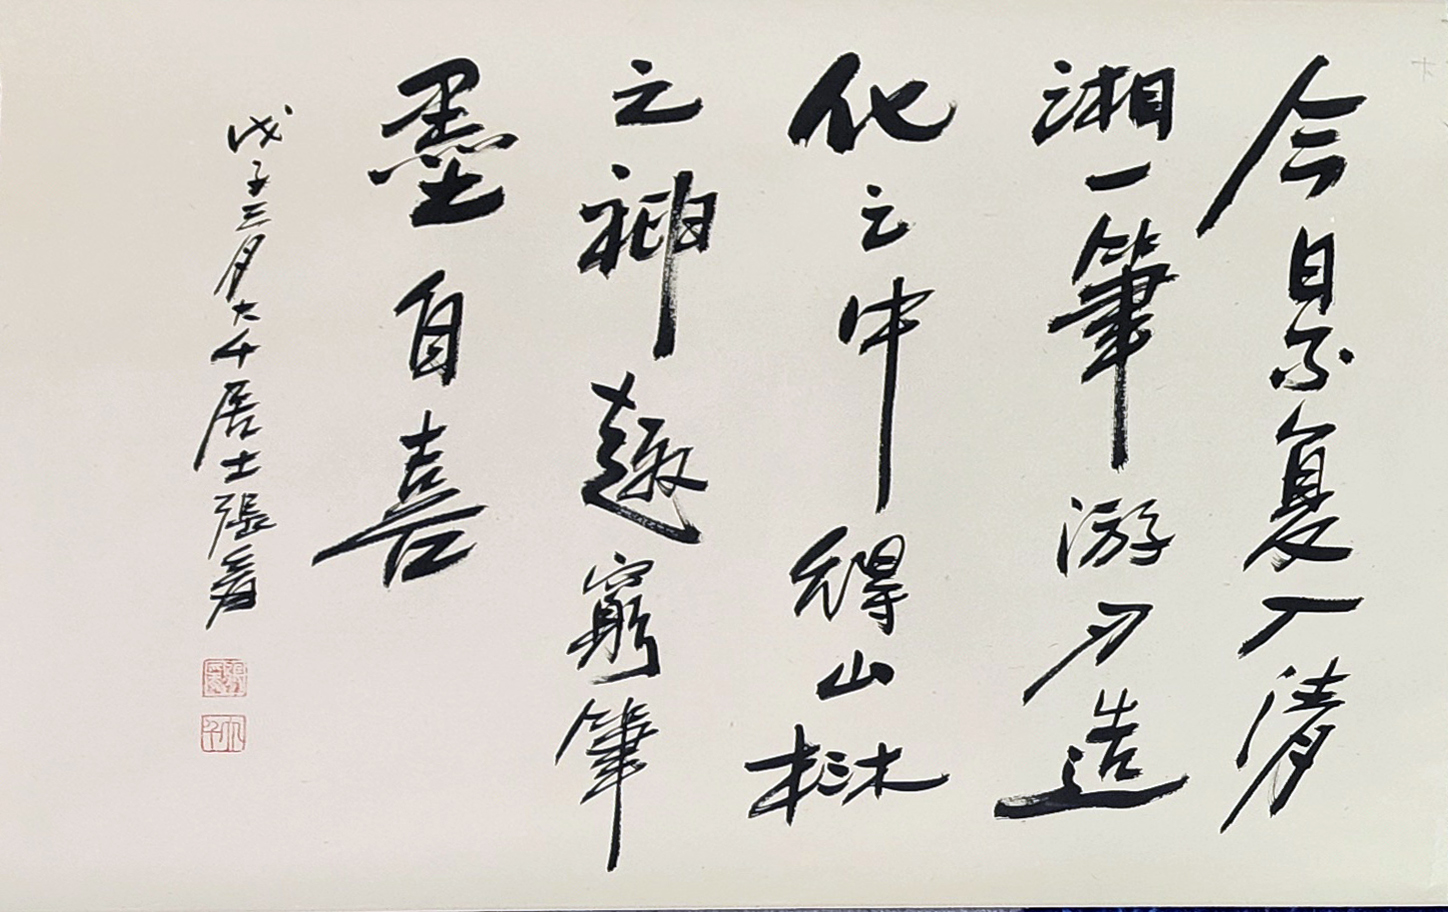 今日不复入清
湘一筆游刃造
化之中得山林
之神趣窮筆
墨自喜
戊子三月大千居士張爰